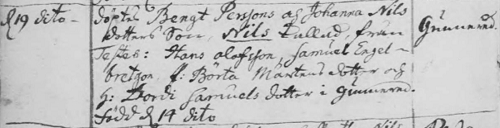 d 19 dito
Döptes Bengt Persons och Johanna Nils
dotters Son, Nils kallad, från Gunnered.
Testes: Hans olofsson, Samuel Engel-
bretson, P: Börta Mårtens dotter och
h: Bordi Samuels dotter i Gunnered.
född d 14 dito